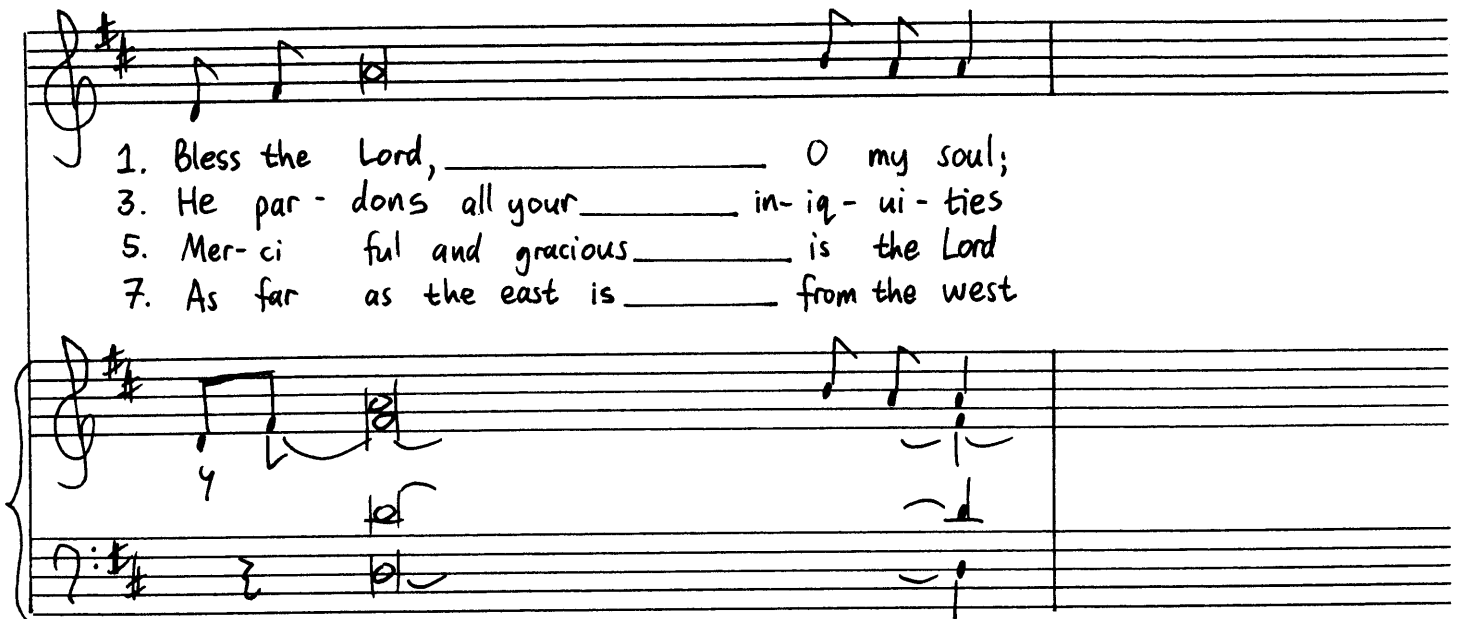 1. Bless the Lord,__________ O my soul;
3. He par - dons all your______ in- iq - ui - ties
5. Mer- ci ful and gracious______ is the Lord
7. As far as the east is______ from the west